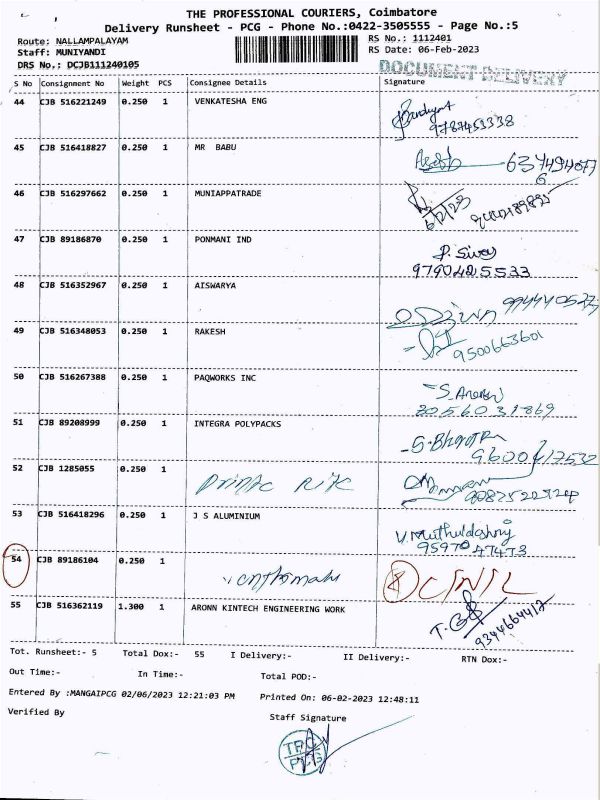 THE PROFESSIONAL COURIERS, Coimbatore
Delivery Runsheet - PCG - Phone No.:0422-3505555 - Page No.:5
Route: NALLAMPALAYAM
Staff: MUNIYANDI
DRS No.: DCJB111240105
RS No.: 1112401
RS Date: 06-Feb-2023
DOCUMENT DELIVERY
S No Consignment No Weight PCS Consignee Details Signature
44 CJB 516221249 0.250 1 VENKATESHA ENG
9787453338
45 CJB 516418827 0.250 1 MR BABU
46 CJB 516297662 0.250 1 MUNIAPPATRADE
6/2/23
47 CJB 89186870 0.250 1 PONMANI IND
P. Siva
9790425533
48 CJB 516352967 0.250 1 AISWARYA
49 CJB 516348053 0.250 1 RAKESH
9500663601
50 CJB 516267388 0.250 1 PAQWORKS INC
51 CJB 89208999 0.250 1 INTEGRA POLYPACKS
9600617532
52 CJB 1285055 0.250 1
53 CJB 516418296 0.250 1 J S ALUMINIUM
9597047473
54 CJB 89186104 0.250 1
55 CJB 516362119 1.300 1 ARONN KINTECH ENGINEERING WORK
9344664412
Tot. Runsheet:- 5 Total Dox:- 55 I Delivery:- II Delivery:- RTN Dox:-
Out Time:- In Time:- Total POD:-
Entered By :MANGAIPCG 02/06/2023 12:21:03 PM Printed On: 06-02-2023 12:48:11
Verified By Staff Signature
TPC
PCG